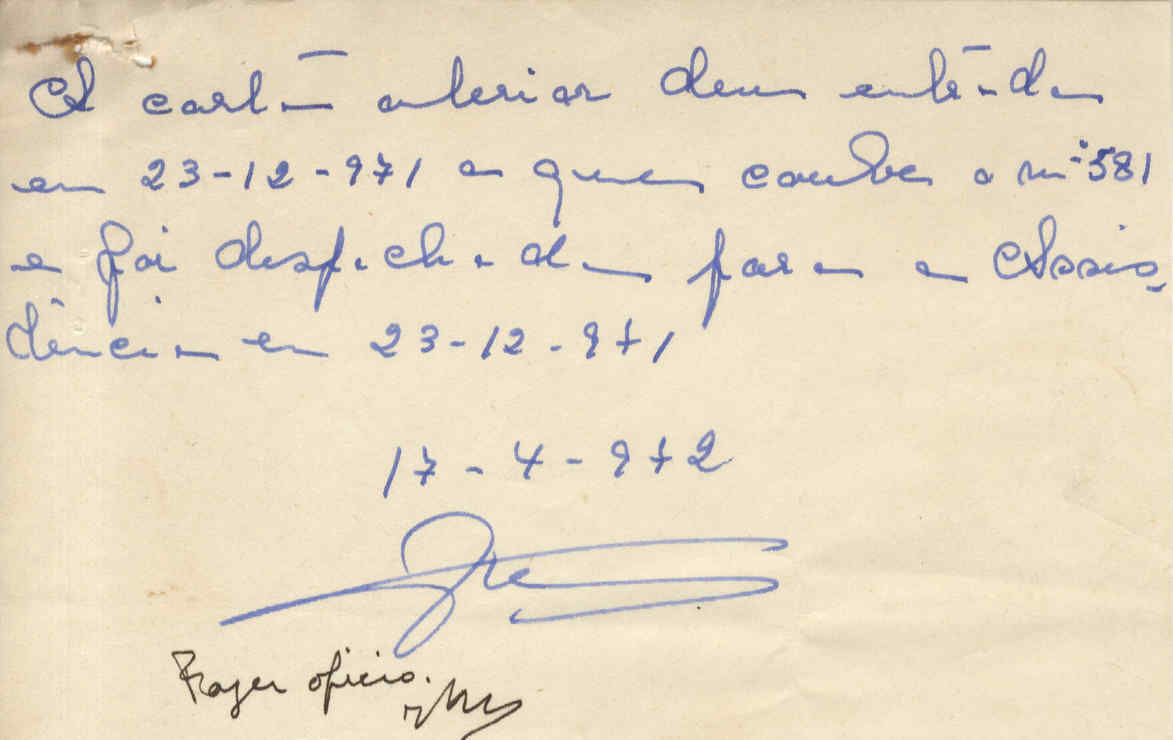 A carta anterior deu entrada
em 23-12-971 a que coube o nº 581
e foi despachada para a Assis-
tência em 23-12-971
17-4-972
Trazer ofício.